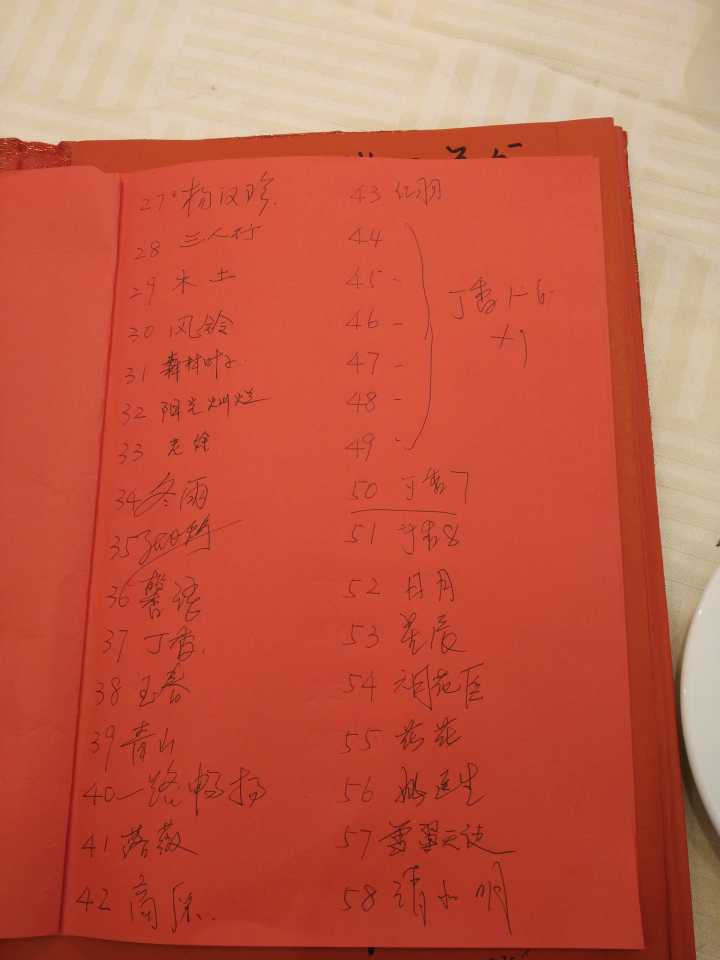 27 杨汉珍
28 三人行
29 木土
30 风铃
31 森林叶子
32 阳光灿烂
33 老徐
34 冬雨
35
36 馨语
37 丁香
38 玉春
39 青山
40 一路畅扬
41 蔷薇
42 高原
43 红羽
44
45 -
46 -
47 -
48 -
49 -
丁香1-6
50 丁香7
51 丁香8
52 日月
53 星辰
54
55
56 姚医生
57 雪翼天使
58 清如明